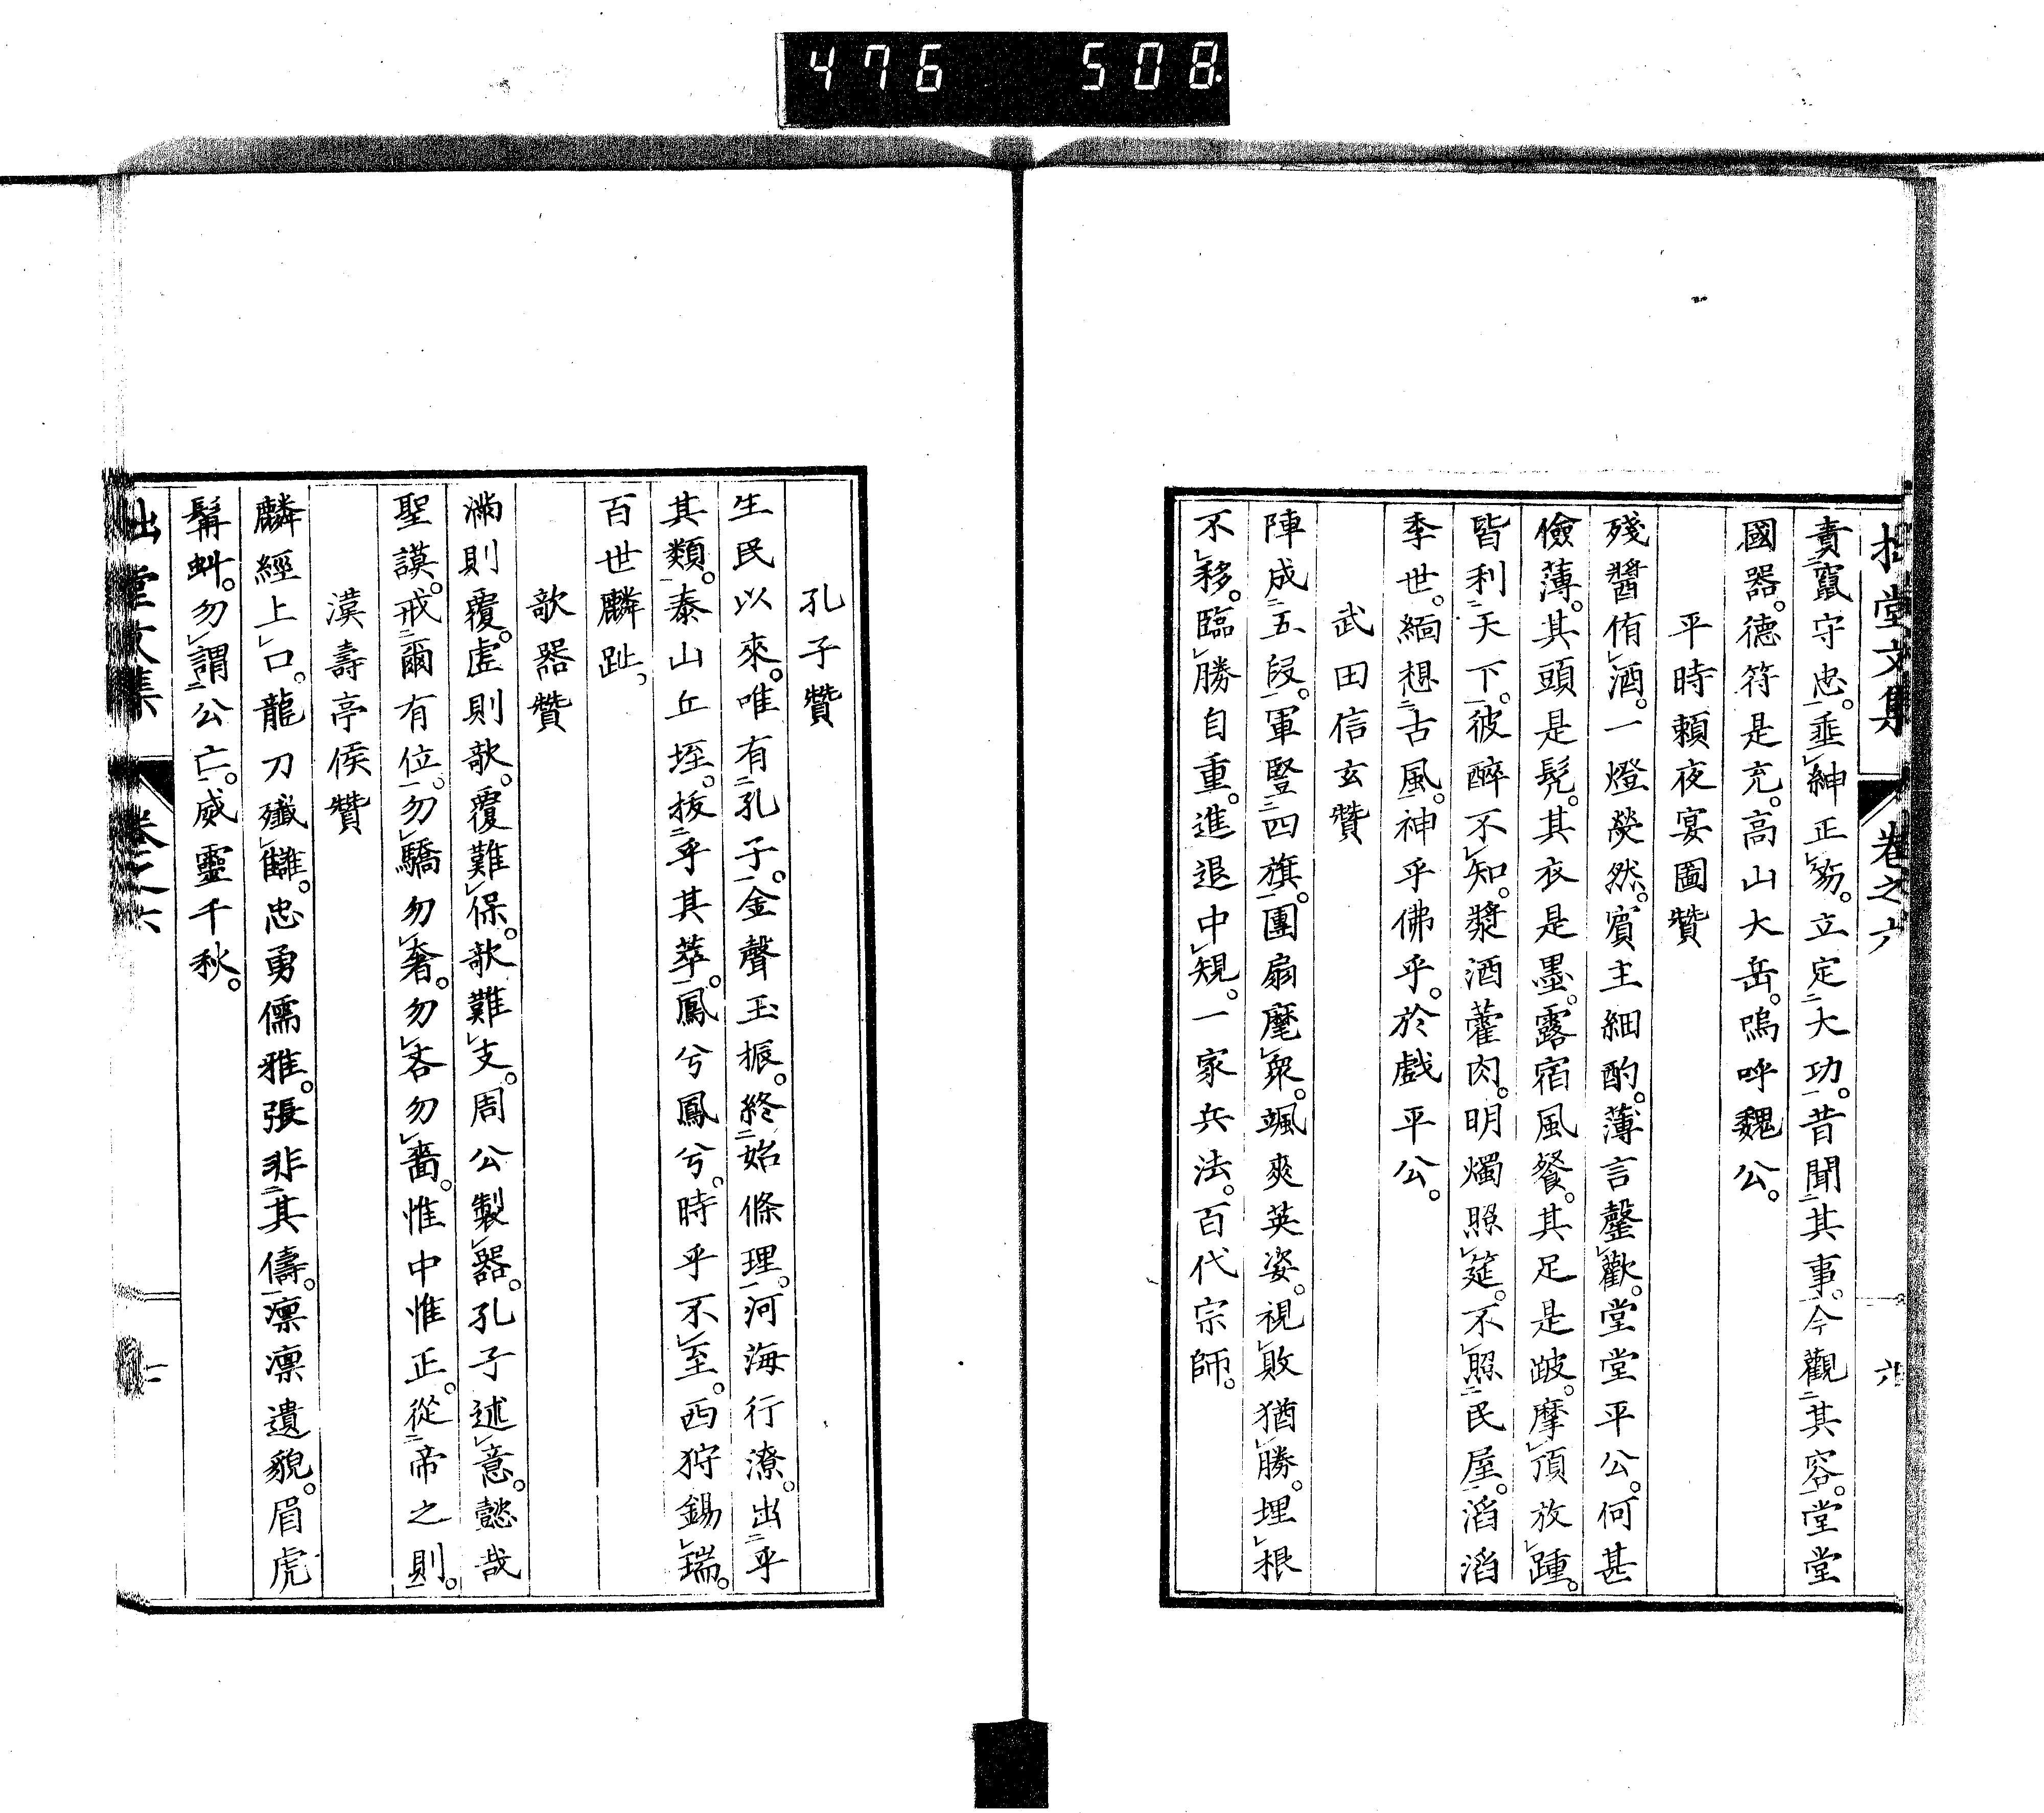 476 508
拙堂文集 卷之六 六
責竄守忠。垂紳正笏。立定二大功一。昔聞二其事一。今觀二其容一。堂堂
國器。德符是充。高山大岳。嗚呼魏公。
平時賴夜宴圖贊
殘醬侑酒。一燈熒然。賓主細酌。薄言罄歡。堂堂平公。何甚
儉薄。其頭是髡。其衣是墨。露宿風餐。其足是跛。摩頂放踵。
皆利二天下一。彼醉不知。漿酒藿肉。明燭照筵。不照二民屋一。滔滔
季世。緬想二古風一。神乎佛乎。於戲平公。
武田信玄贊
陣成二五段一。軍豎二四旗一。團扇麾衆。颯爽英姿。視敗猶勝。埋根
不移。臨勝自重。進退中規。一家兵法。百代宗師。
孔子贊
生民以來。唯有二孔子一。金聲玉振。終二始條理一。河海行潦。出二乎
其類一。泰山丘垤。拔二乎其萃一。鳳兮鳳兮。時乎不至。西狩錫瑞。
百世麟趾。
欹器贊
滿則覆。虛則欹。覆難保。欹難支。周公製器。孔子述意。懿哉
聖謨。戒二爾有位一。勿驕勿奢。勿吝勿嗇。惟中惟正。從二帝之則一。
漢壽亭侯贊
麟經上口。龍刀殲讎。忠勇儒雅。張非二其儔一。凛凛遺貌。眉虎
髯虯。勿謂二公亡一。威靈千秋。
拙堂文集 卷之六